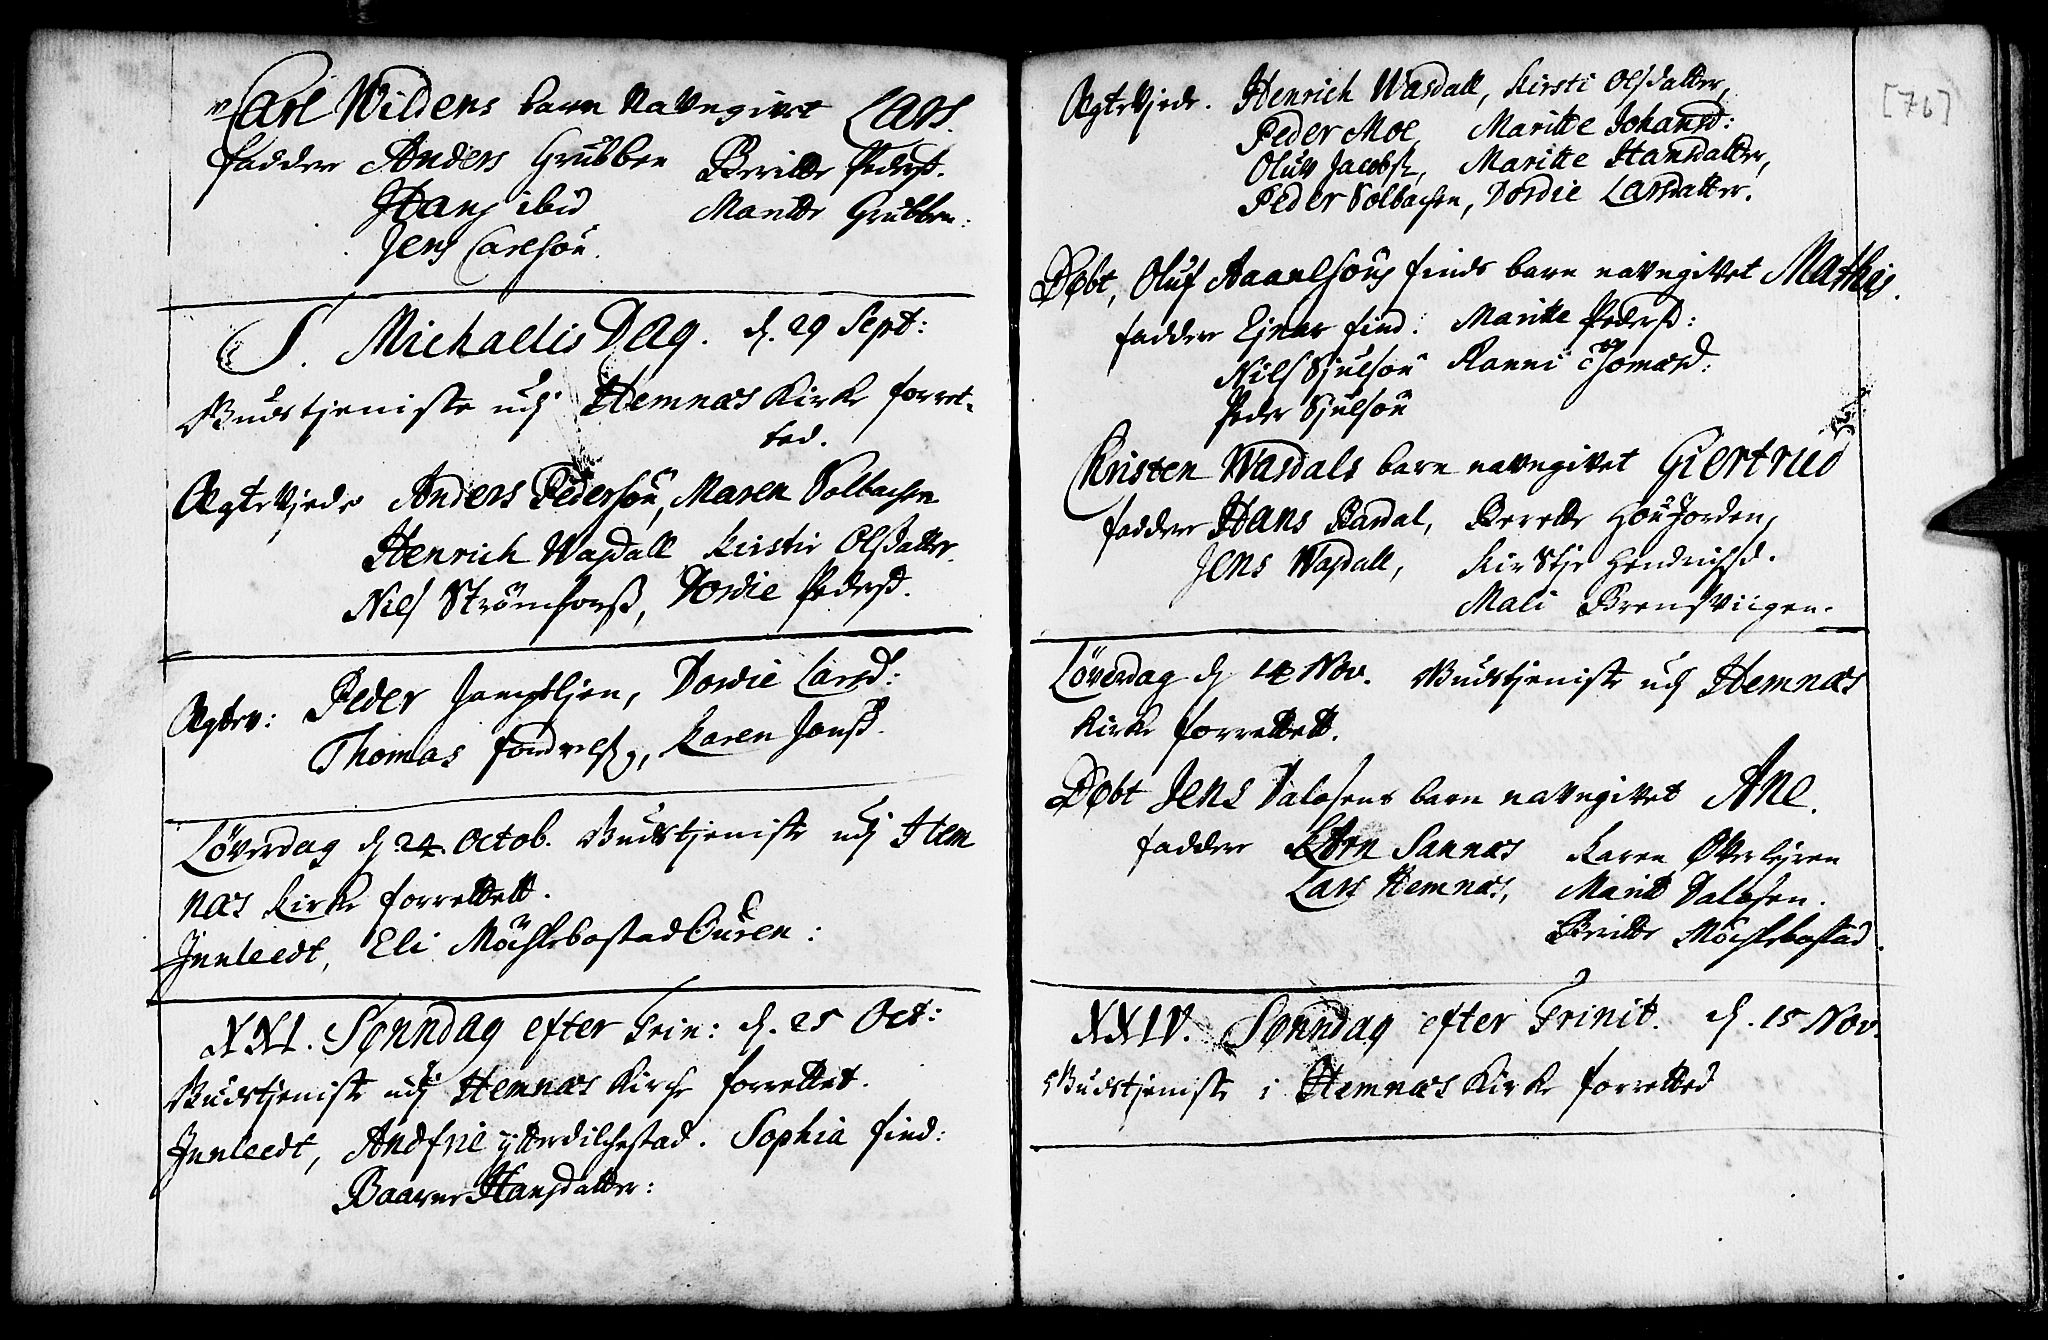 Carl Wildens barn navngivet Lars.
faddere Anders Grubben Beritte Pedersd.
Hans ibid Maritte Grubben.
Jens Carlsøn.
S. Michaelis Dag. d. 29 Sept:
Gudstjeniste udj Hemnæs Kirke forret-
ted.
Ægtevjede Anders Pedersøn, Maren Solbachen
Henrich Wasdall Kirstie Olsdatter.
Nils Strømforss, Dordie Pedersd.
Ægtev: Peder Jamptljen, Dordie Larsd:
Thomas, Karen Jonsd.
Löverdag d. 24. Octob. Gudstjeniste udj Hem
næs Kirke forrettett.
Jnnleedt, Eli Möchlebostad Ouren:
XXI. Sønndag efter Trin: d. 25 Oct:
Gudstjeniste udj Hemnæs Kirche forrettet.
Jnnleedt, Andfrie ytterdilchestad. Sophia find:
Baarne Hansdatter:
[76]
Ægtevjede. Henrich Wasdall, Kirsti Olsdatter,
Peder Moe, Maritte Johansd:
Oluv Jacobsn, Maritte Hansdatter,
Peder Solbachen, Dordie Larsdatter.
Døbt, Oluf Aaarelsøns finds barn navngivet Mathis.
faddere Ejnar find. Maritte Pedersd:
Nils Sjulsøn Ranni Thomæsd:
Peder Sjulsøn
Christen Wasdals barn navngivet Giertrud
faddere Hans Randal, Berette Houjorden,
Jens Wasdall, Kirstje Hendrichsd.
Mali Brensviigen.
Löverdag d. 14 Nov. Gudstjeniste udj Hemnæs
Kirke forrettett.
Døbt Jens Dalosens barn navngivet Ane.
faddere Sannæs Karen Øverlejren
Lars Hemnæs, Maritt Dalosen.
Beritte Möchlebostad.
XXIV. Sønndag efter Trinit. d. 15 Nov.
Gudstjeniste i Hemnæs Kirke forretted